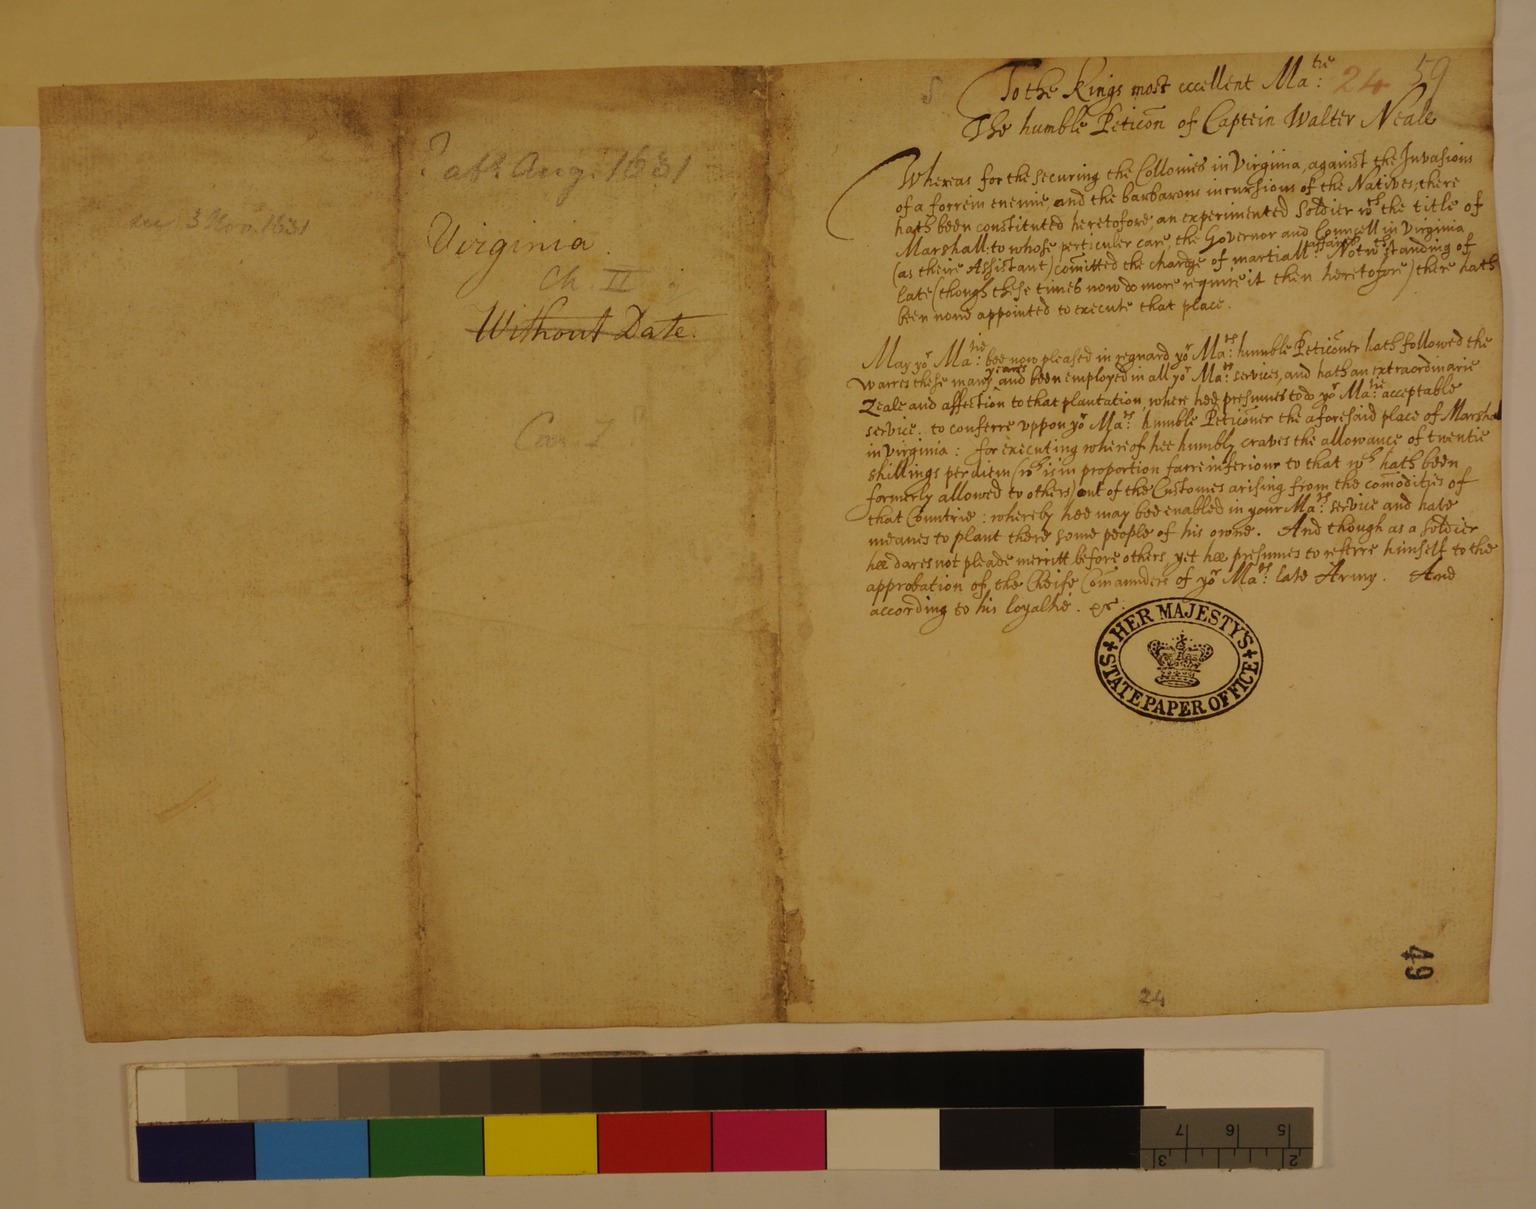 see 3 Nov. 1631
? aft. Aug. 1631
Virginia.
Ch. II
Without Date.
Car. I
24 59
To the Kings most eccellent Ma:tie
The humble Peticōn of Captein Walter Neale
Whereas for the securing the Collonies in Virginia, against the Invasions
of a forrein enemie, and the barbarous incursions of the Natives, there
hath been constituted heretofore, an experimented Soldier wth the title of
Marshall; to whose perticuler care, the Governor and Councell in Virginia
(as theire Assistant) cōmitted the chardge of martiall affaires. Notwthstanding of
late (though these times now do more require it then heretofore) there hath
been none appointed to execute that place.
May yor Ma:tie bee now pleased in reguard yor Ma:ts humble Peticōner hath followed the
Warres these many yeares and been employed in all yor Ma:ts services, and hath an extraordinarie
Zeale and affection to that plantation, where hee presumes to do yor Ma:tie acceptable
service. to conferre uppon yor Ma:ts humble Peticōner the aforesaid place of Marshall
in Virginia: for executing whereof hee humbly craves the allowance of twentie
shillings per diem (wch is in proportion farre inferiour to that wch hath been
formerly allowed to others) out of the Customes arising from the comōdities of
that Countrie: whereby hee may bee enabled in your Ma:ts service and have
meanes to plant there some people of his owne. And though as a soldier
hee dares not pleade merritt before others yet hee presumes to referre himself to the
approbation of the Cheife Com̄aunders of yor Ma:ts late Army. And
according to his loyaltie. &c.
HER MAJESTY'S
STATE PAPER OFFICE
49
24
7 6 5
3 2